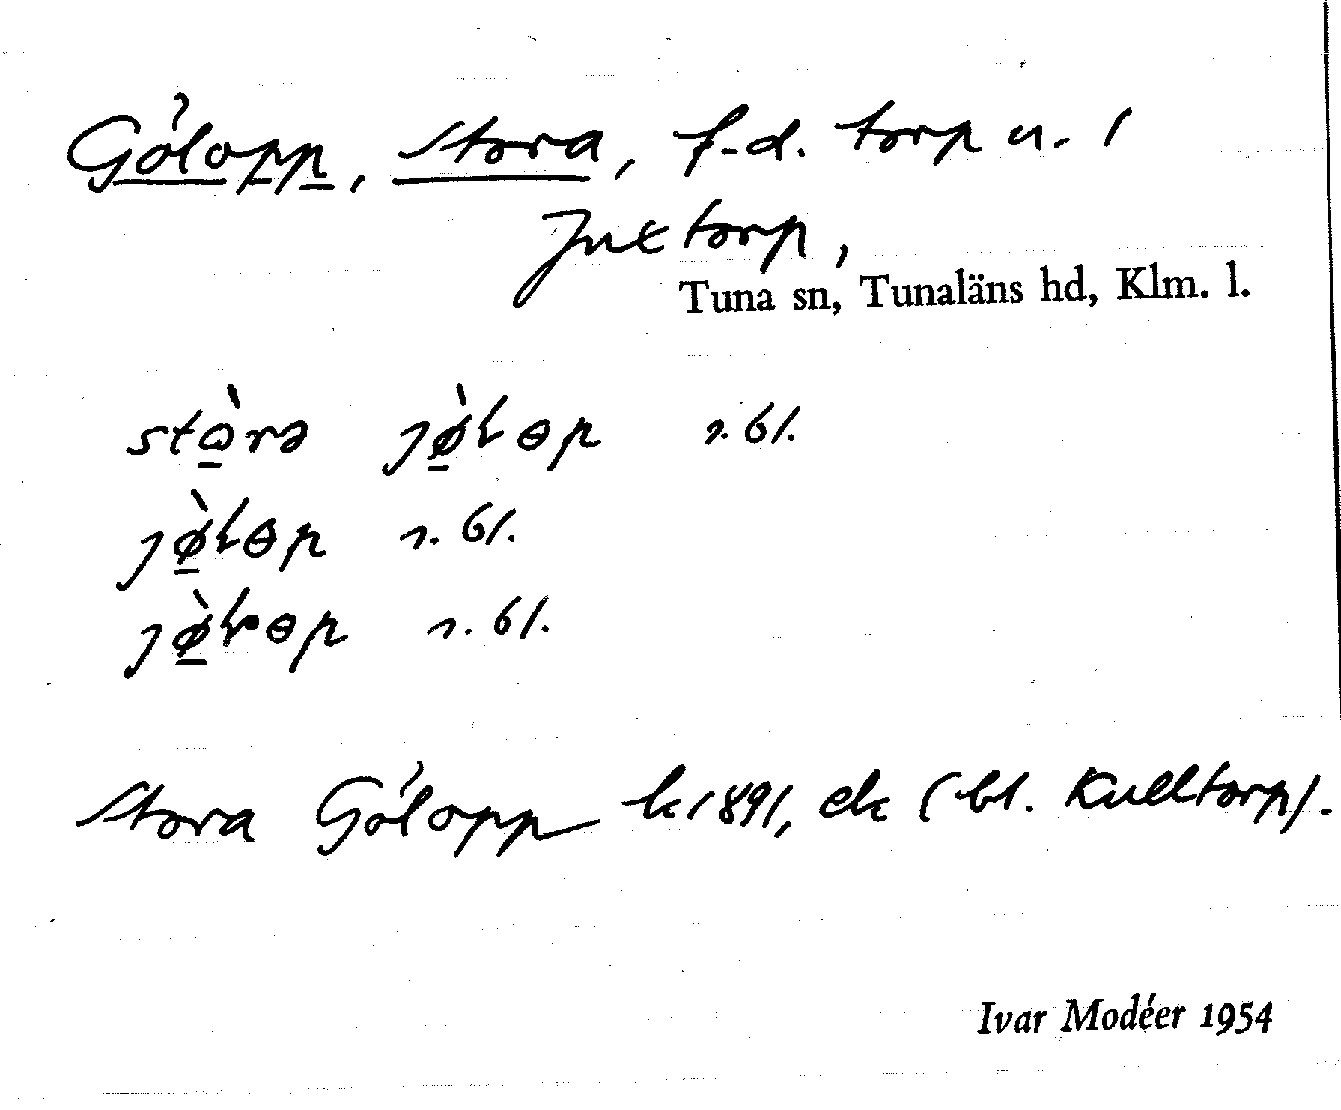 Gölopp, Stora, f.d. torp u. 1
Juxtorp,
Tuna sn, Tunaläns hd, Klm. l.
stò̱rə jø̱̀ɬɵp r. 61.
jø̱̀ɬɵp r. 61.
jø̱̀ɬɵp r. 61.
Stora Gölopp k 1891, ek (bl. Kulltorp).
Ivar Modéer 1954